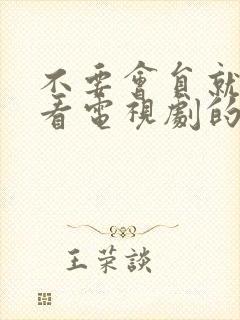 不要會自就
看電視劇的
王荣談